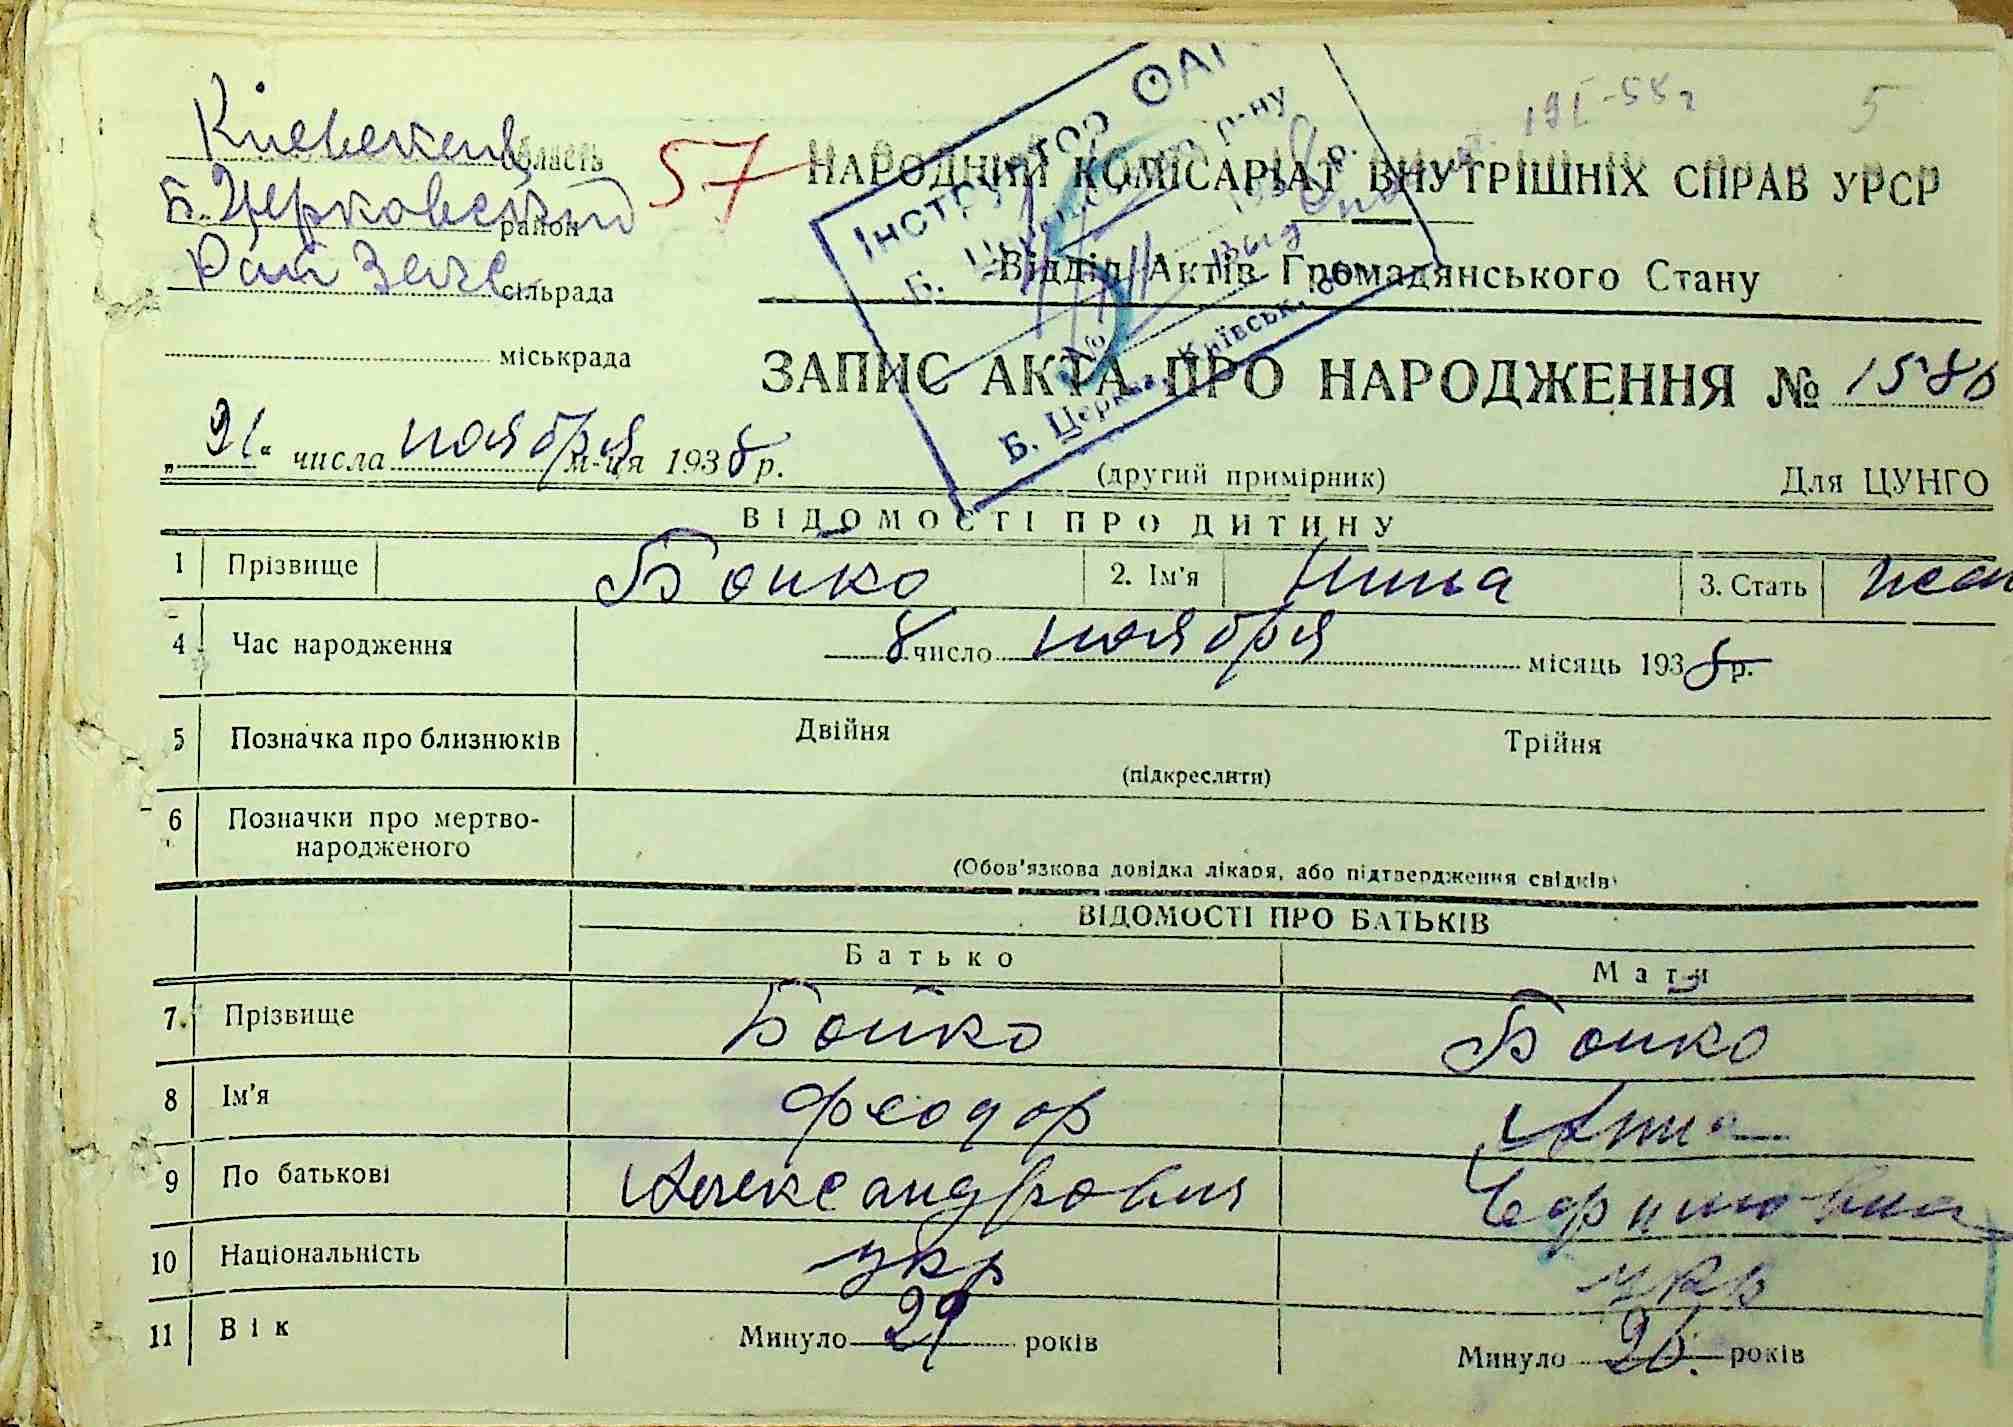 Киевская область
Б. Церковский район
Рай Загс сільрада
міськрада
57
5
НАРОДНИЙ КОМІСАРІАТ ВНУТРІШНІХ СПРАВ УРСР
Відділ Актів Громадянського Стану
ЗАПИС АКТА ПРО НАРОДЖЕННЯ № 1586
Б. Церква, Київськ. об.
„21“ числа ноября м-ця 1938 р.
(другий примірник)
Для ЦУНГО
ВІДОМОСТІ ПРО ДИТИНУ
1 Прізвище Бойко 2. Ім'я Нина 3. Стать жен
4 Час народження 8 число ноября місяць 1938 р.
5 Позначка про близнюків Двійня Трійня
(підкреслити)
6 Позначки про мертво-
народженого
(Обов'язкова довідка лікаря, або підтвердження свідків)
ВІДОМОСТІ ПРО БАТЬКІВ
Батько Мати
7. Прізвище Бойко Бойко
8 Ім'я Феодор Анна
9 По батькові Александрович
10 Національність укр укр
11 Вік Минуло 29 років Минуло 26 років